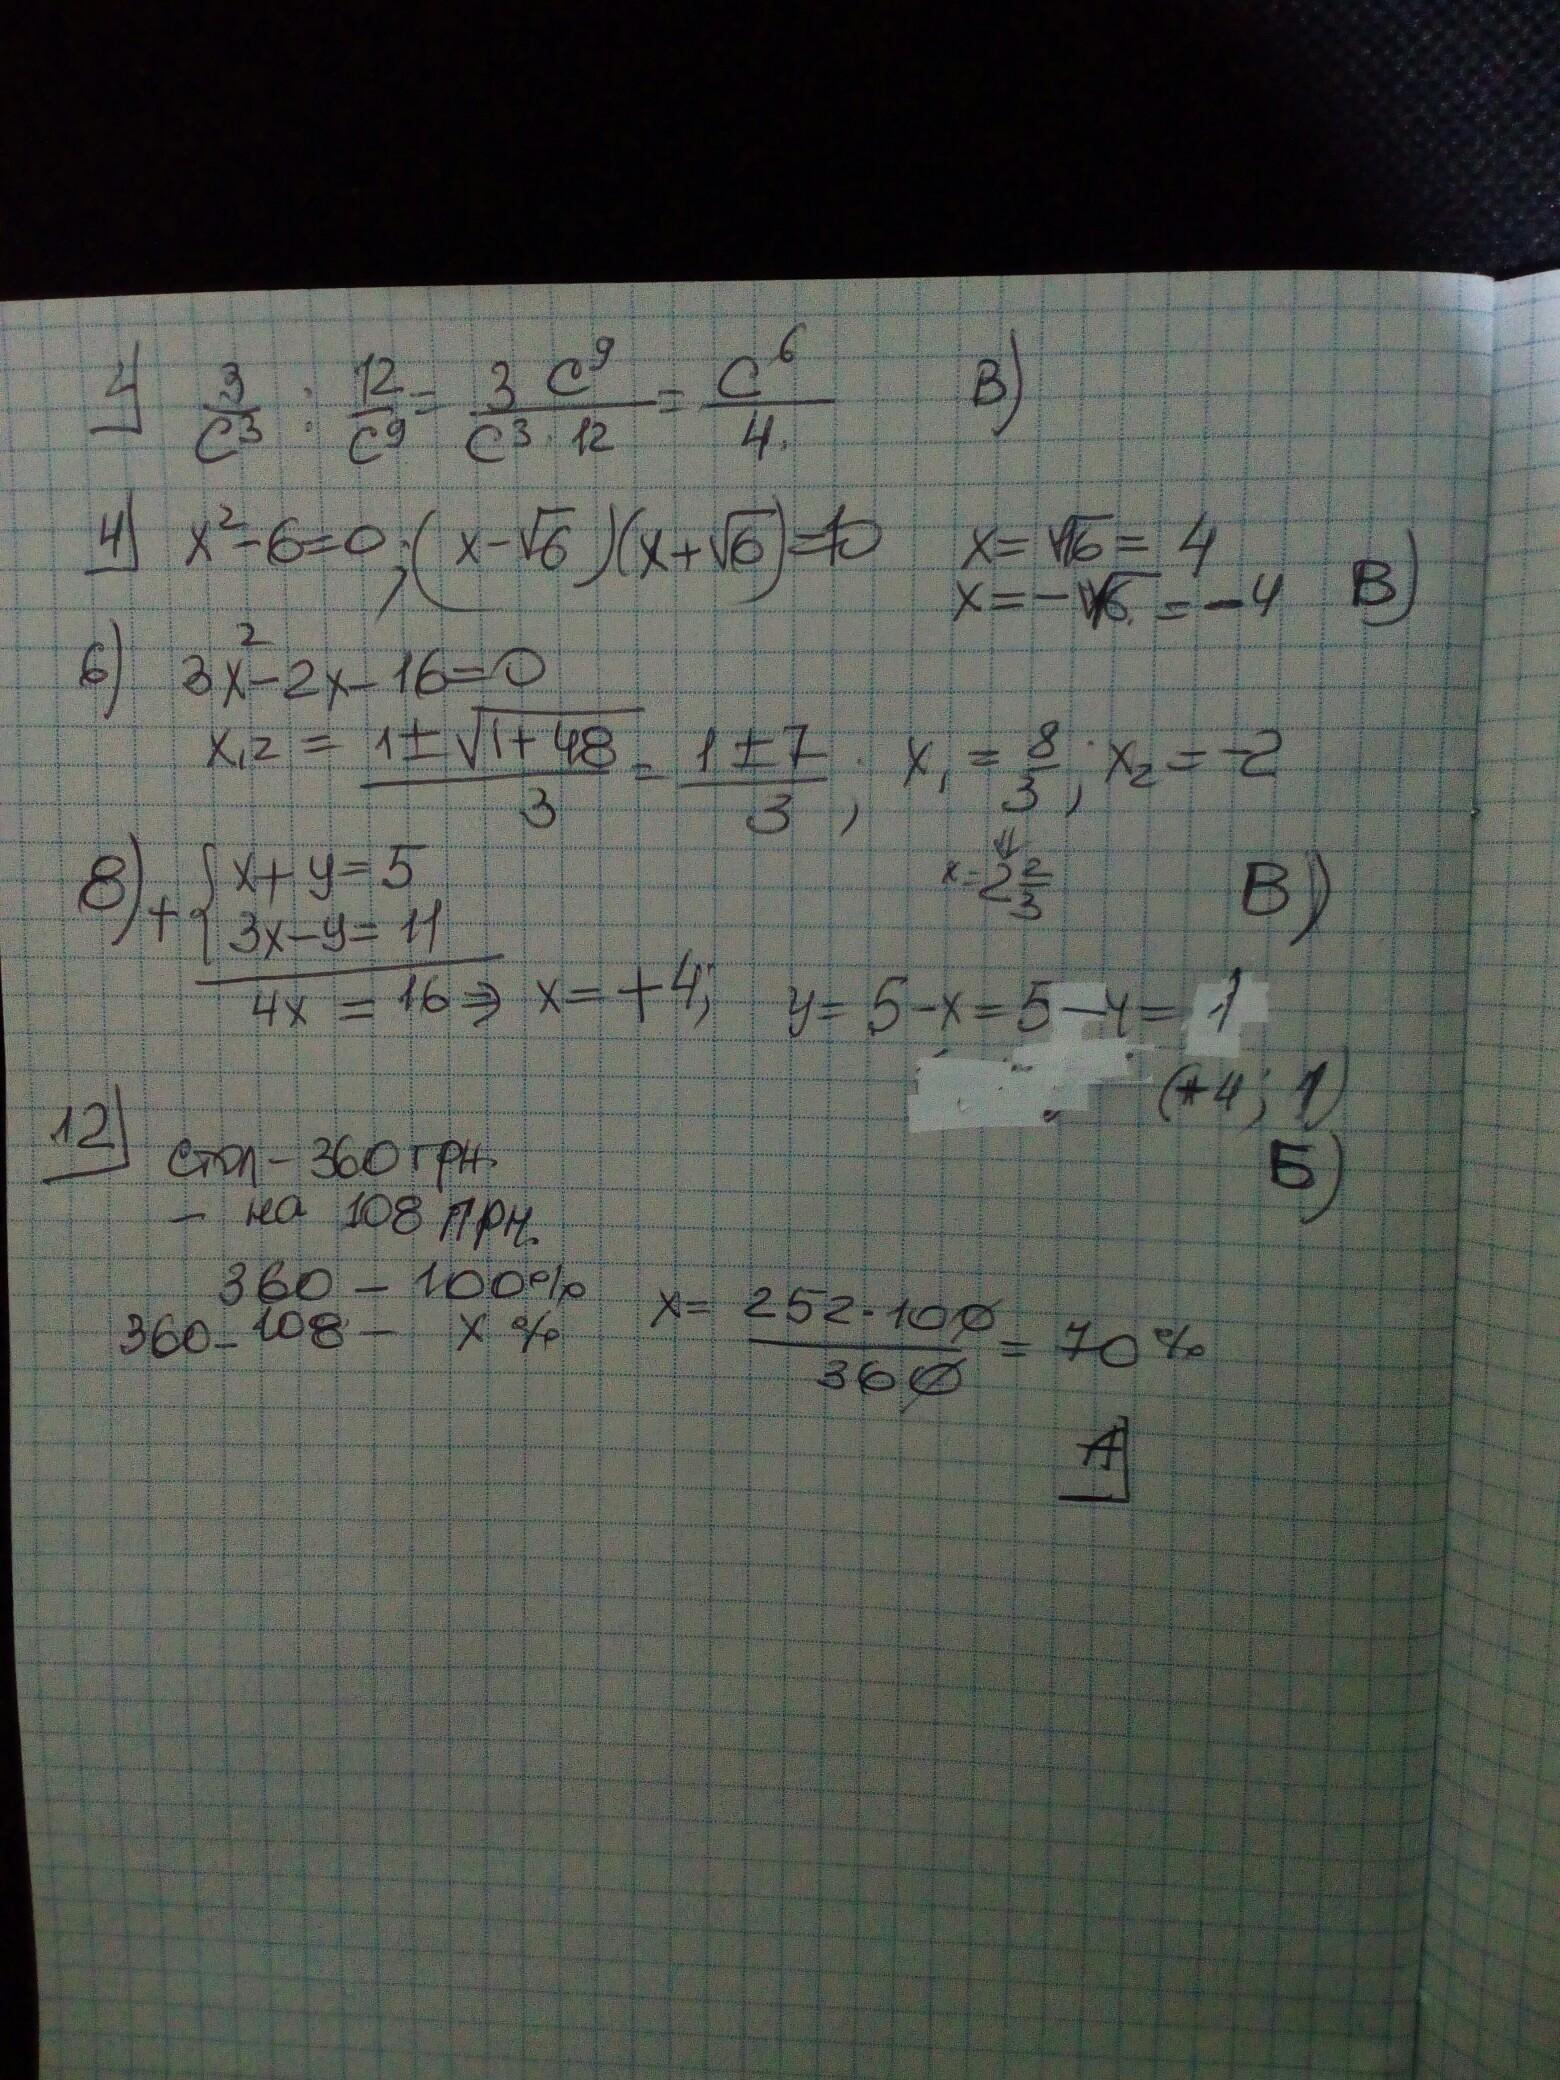 2) 3/c³ : 12/c⁹ = 3 c⁹/(c³ · 12) = c⁶/4. В)
4) x² - 6 = 0; (x - √6)(x + √6) = 0 x = √16 = 4
x = -√16. = -4 В)
6) 3x² - 2x - 16 = 0
x₁,₂ = (1 ± √(1 + 48))/3 = (1 ± 7)/3; x₁ = 8/3; x₂ = -2
⇓
x = 2 2/3 В)
8) + { x + y = 5
3x - y = 11
4x = 16 ⇒ x = +4; y = 5 - x = 5 - 4 = 1
(+4; 1)
Б)
12) стол - 360 грн.
- на 108 грн.
360 - 100%
360 - 108 - x % x = 252 · 100/360 = 70%
А